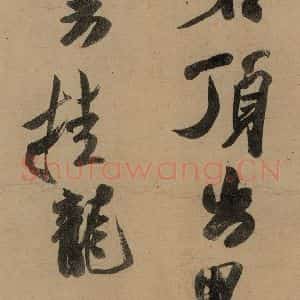 頂出
挂龍
Shufawang.CN